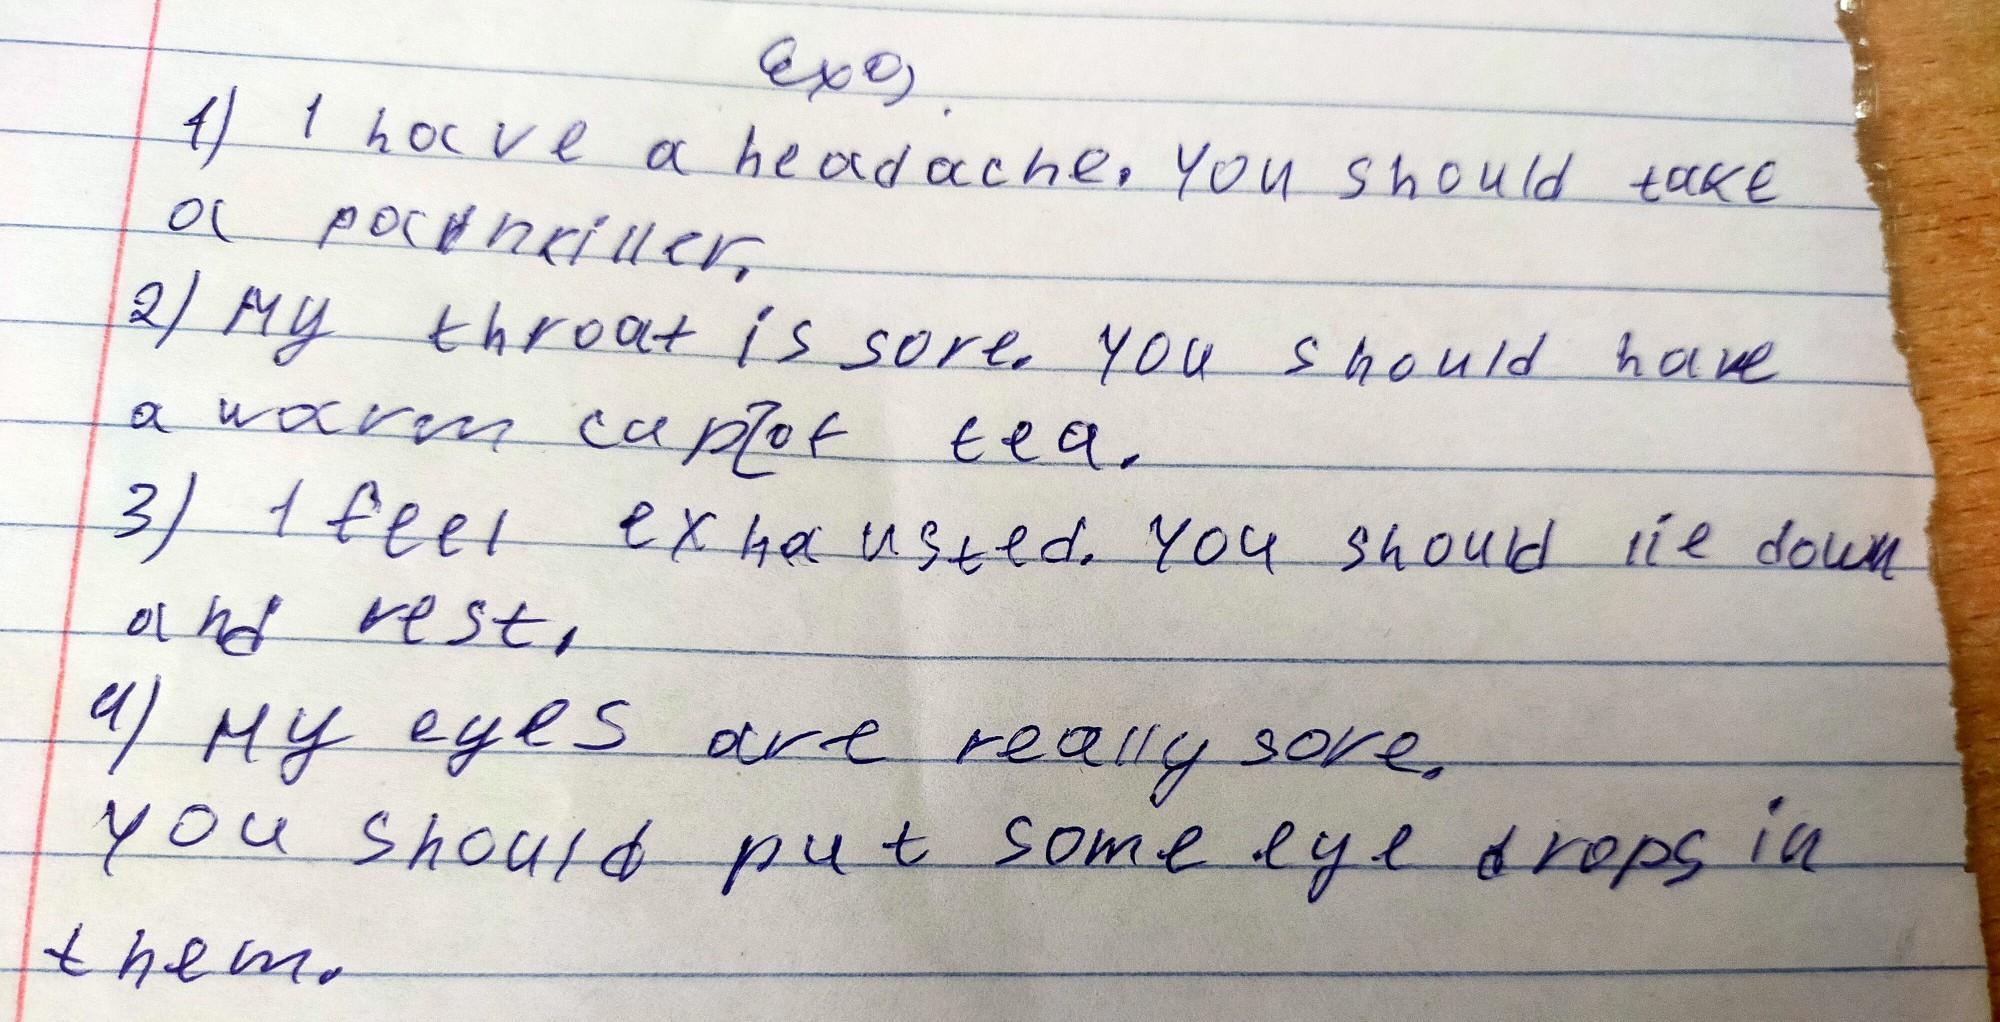 1) I have a headache. You should take
a painkiller.
2) My throat is sore. You should have
a warm cup of tea.
3) I feel exhausted. You should lie down
and rest.
4) My eyes are really sore.
You should put some eye drops in
them.